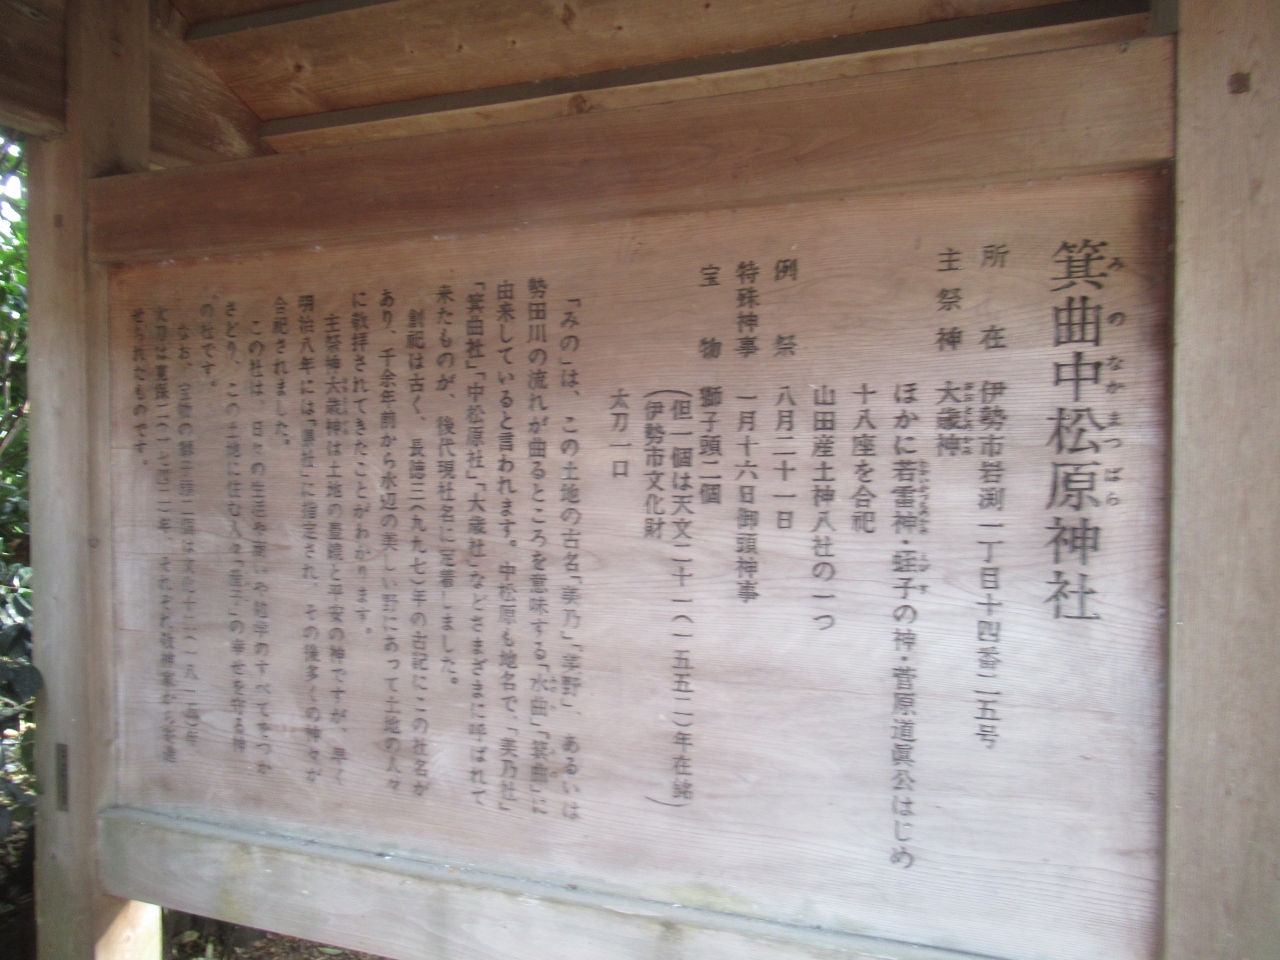 箕曲中松原神社
所在 伊勢市岩渕一丁目十四番二五号
主祭神 大歳神
ほかに若雷神・蛭子の神・菅原道眞公はじめ
十八座を合祀
山田産土神八社の一つ
例祭 八月二十一日
特殊神事 一月十六日御頭神事
宝物 獅子頭二個
(但一個は天文二十一(一五五二)年在銘)
(伊勢市文化財
太刀一口
「みの」は、この土地の古名「美乃」「箕野」、あるいは
勢田川の流れが曲るところを意味する「水曲」「箕曲」に
由来していると言われます。中松原も地名で、「美乃社」
「箕曲社」「中松原社」「大歳社」などさまざまに呼ばれて
来たものが、後代現社名に定着しました。
創祀は古く、長徳三(九九七)年の古記にこの社名が
あり、千余年前から水辺の美しい野にあって土地の人々
に敬拝されてきたことがわかります。
主祭神大歳神は土地の豊饒と平安の神ですが、早く
明治八年には「県社」に指定され、その後多くの神々が
合祀されました。
この社は、日々の生活や商いや結学のすべてをつか
さどり、この土地に住む人々「産子」の幸せを守る神
の社です。
なお、宝物の獅子頭二個は文化十一(一八一四)年
太刀は寛保二(一七四二)年、それぞれ敬神家から寄進
せられたものです。